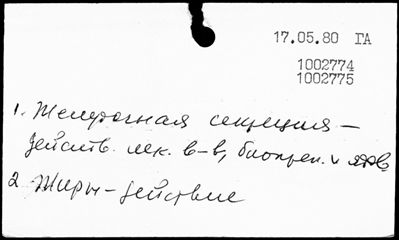 17.05.80 ГА
1002774
1002775
1. Желудочная секреция —
действ. лек. в-в, биопреп. и ядов
2 Жиры - действие